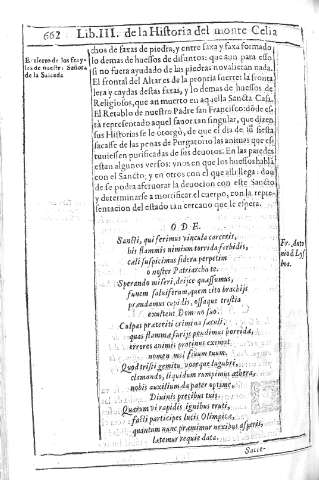 662 Lib. III. de la Historia del monte Celia
chos de faxas de piedra, y entre faxa y faxa formado
lo demas de huessos de difuntos: que aun para esso
si no fuera ayudado de las piedras no valieran nada.
El frontal del Altar es de la propia suerte: la fronta
lera y caydas destas faxas, y lo demas de huessos de
Religiosos, que an muerto en aquella Sancta Casa.
El Retablo de nuestro Padre san Francisco: dõde es-
tà representado aquel favor tan singular, que dizen
sus Historias se le otorgò, de que el dia de su fiesta
sacasse de las penas de Purgatorio las animas que es-
tuviessen purificadas de sus devotos. En las paredes
estan algunos versos: unos en que los huessos hablã
con el Sancto; y en otros con el que alli llega: don
de se podra afervorar la devocion con este Sancto
y determinarse a mortificar el cuerpo, con la repre-
sentacion del estado tan cercano que le espera.
de nuestra Señora
de la Salceda
O D E.
Sancti, qui ferimus vincula carceris,
his flammis nimium torrida
cali suspicimus sidera perpetim
o noster Patriarcha te.
Sperando miseri,
funem salviferum, quem cito brachijs
prendamus cupidis, ossaque tristia
exultent Domino suo.
Culpas praeteriti crimina saeculi,
quas flamma
errores animi protinus exempt
nomen
Quod tristi gemitu, voce que lugubri,
clamando, liquidum rumpimus aethera,
nobis auxilium da pater optime,
Divinis precibus tuis.
Quarum vi rapidis ignibus eruti,
facti participes lucis Olimpicae,
quantum nunc praemimur nexibus asperis,
laetemur requie data.
Fr. Anto
nio d Lys
boa.